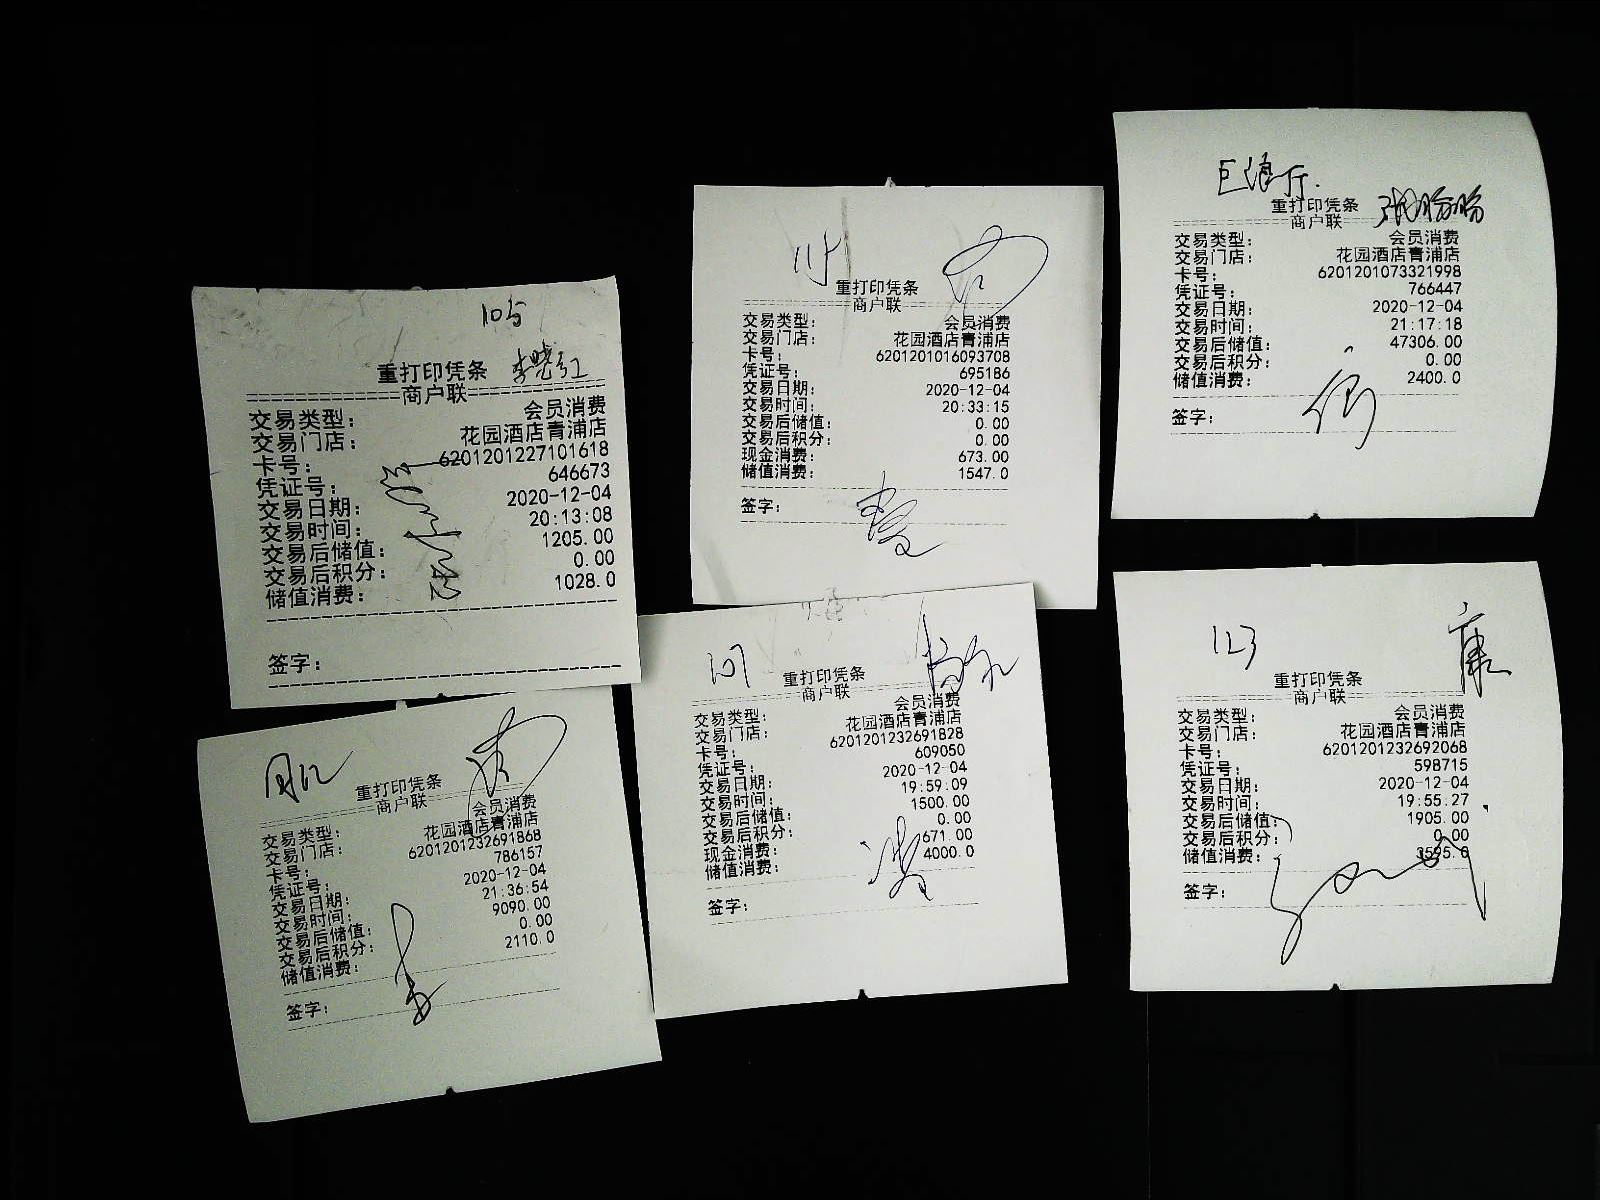 105
重打印凭条 李晓红
商户联
交易类型： 会员消费
交易门店： 花园酒店青浦店
卡号： 6201201227101618
凭证号： 646673
交易日期： 2020-12-04
交易时间： 20:13:08
交易后储值： 1205.00
交易后积分： 0.00
储值消费： 1028.0
签字：
重打印凭条
商户联
交易类型： 会员消费
交易门店： 花园酒店青浦店
卡号： 6201201016093708
凭证号： 695186
交易日期： 2020-12-04
交易时间： 20:33:15
交易后储值： 0.00
交易后积分： 0.00
现金消费： 673.00
储值消费： 1547.0
签字：
巨浪厅.
重打印凭条 张盼盼
商户联
交易类型： 会员消费
交易门店： 花园酒店青浦店
卡号： 6201201073321998
凭证号： 766447
交易日期： 2020-12-04
交易时间： 21:17:18
交易后储值： 47306.00
交易后积分： 0.00
储值消费： 2400.0
签字：
重打印凭条
商户联
交易类型： 会员消费
交易门店： 花园酒店青浦店
卡号： 6201201232691868
凭证号： 786157
交易日期： 2020-12-04
交易时间： 21:36:54
交易后储值： 9090.00
交易后积分： 0.00
储值消费： 2110.0
签字：
107
重打印凭条
商户联
交易类型： 会员消费
交易门店： 花园酒店青浦店
卡号： 6201201232691828
凭证号： 609050
交易日期： 2020-12-04
交易时间： 19:59:09
交易后储值： 1500.00
交易后积分： 0.00
现金消费： 671.00
储值消费： 4000.0
签字：
123 康
重打印凭条
商户联
交易类型： 会员消费
交易门店： 花园酒店青浦店
卡号： 6201201232692068
凭证号： 598715
交易日期： 2020-12-04
交易时间： 19:55:27
交易后储值： 1905.00
交易后积分： 0.00
储值消费： 3595.0
签字：